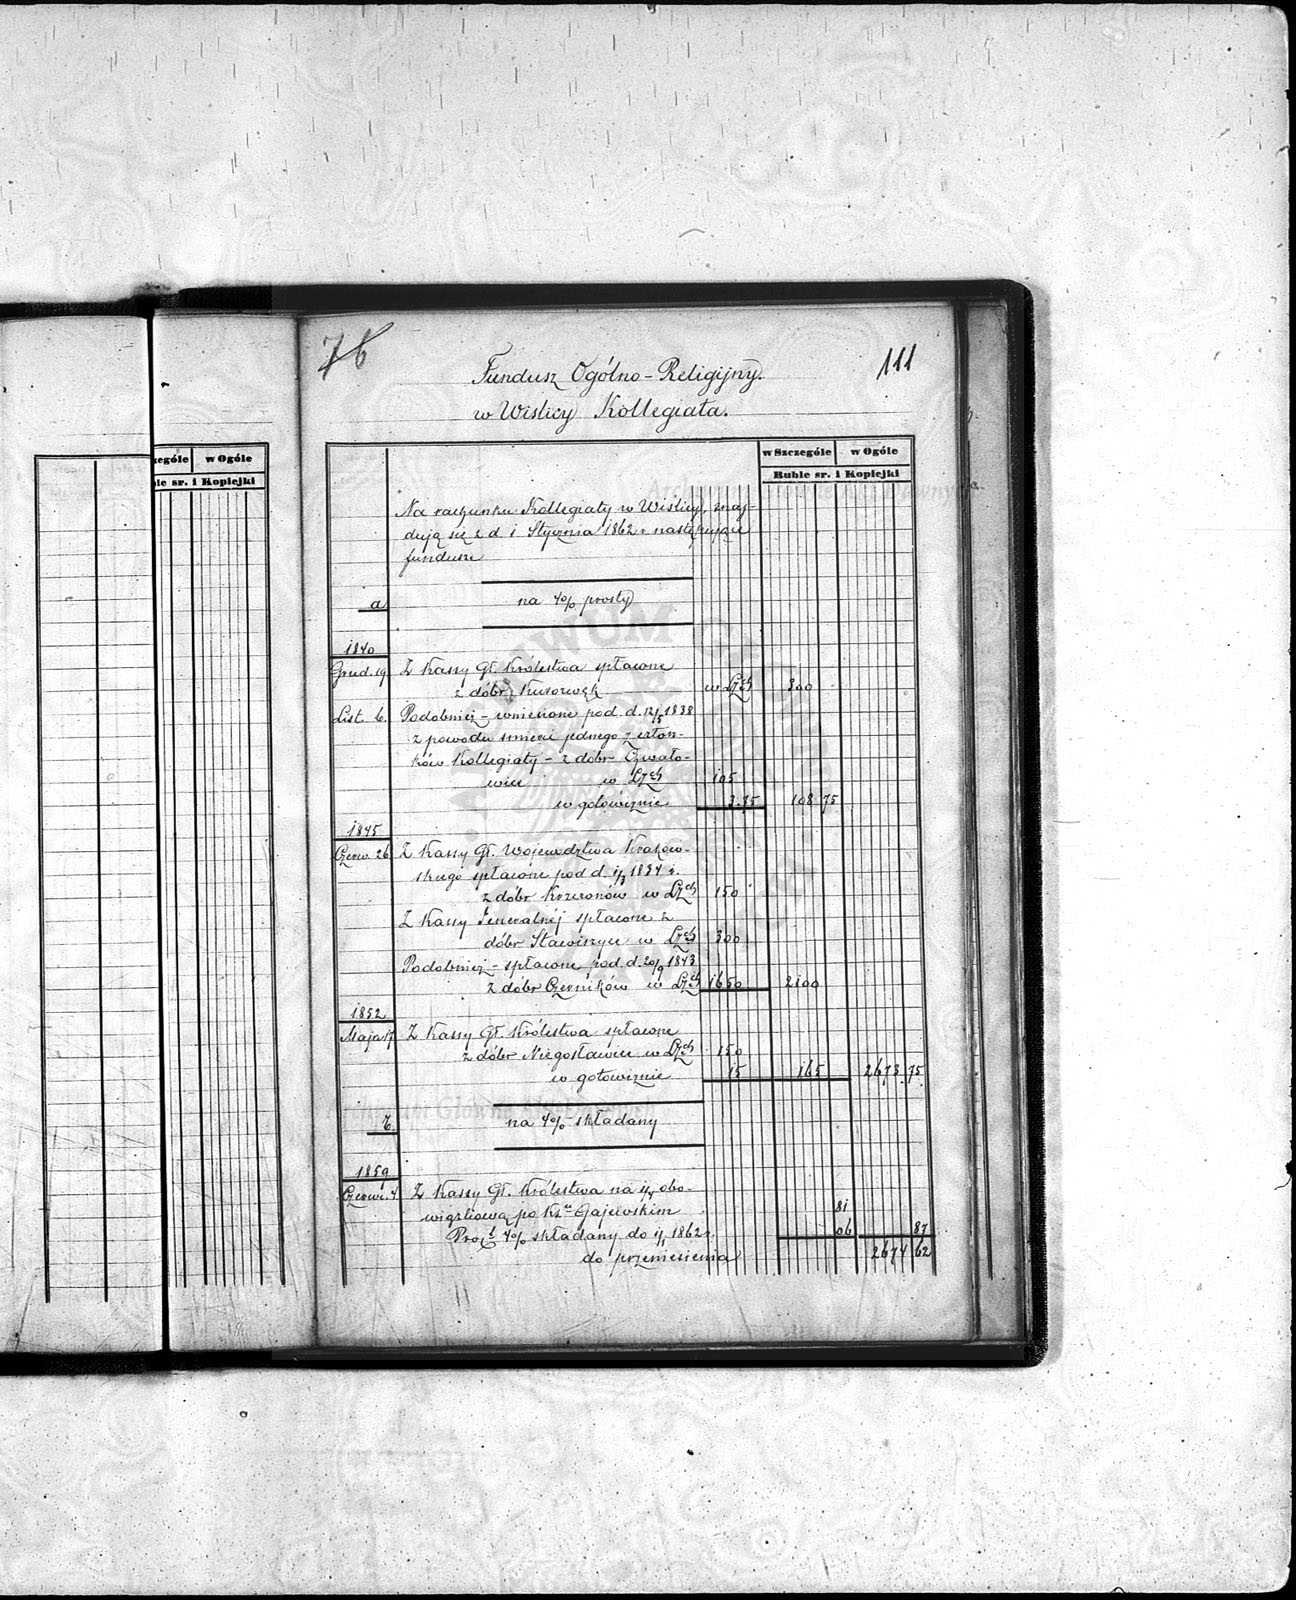 76
111
Fundusz Ogólno-Religijny.
w Wiślicy Kollegiata.
w Szczególe w Ogóle
Ruble sr. i Kopiejki
w Ogóle
i Kopiejki
Na rachunku Kollegiaty w Wiślicy, znaj-
dują się z d. 1 Stycznia 1862 r. następujące
fundusze
a na 4% prosty
1840
Grud. 19. Z Kassy Gł. Królestwa spłacone
z dóbr Kurozwęk w Lzch 300
List. 6. Podobnież - wniesione pod. d. 12/5 1838
z powodu śmierci jednego z człon-
ków Kollegiaty - z dóbr Czwało-
wice w Lzch 105
w gotowiznie 3.75 108.75
1845
Czerw. 26 Z Kassy Gł. Województwa Krakow-
skiego spłacone pod d. 1/3 1834 r.
z dóbr Krzczonów w Lzch 150
Z Kassy Jeneralnéj spłacone z
dóbr Stawiszyce w Lzch 300
Podobnież - spłacone pod. d. 20/9 1843
z dóbr Czerników w Lzch 1650 2100
1852
Maja 17 Z Kassy Gł. Królestwa spłacone
z dóbr Niegosławice w Lzch 150
w gotowiznie 15 165 2673.75
b. na 4% składany
1859
Czerw. 4 Z Kassy Gł. Królestwa na obo-
wiązkową po Gajewskim 81
Proct 4% składany do 1/1 1862 r. 06 87
do przeniesienia 2674 62